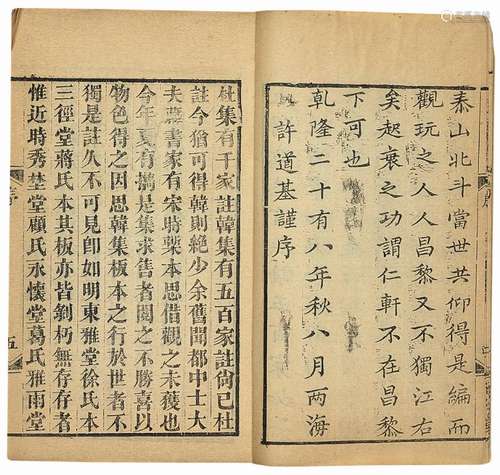 泰山北斗當世共仰得是編而
觀玩之人人昌黎又不獨江右
矣起衰之功謂仁軒不在昌黎
下可也
乾隆二十有八年秋八月两海
許道基謹序
杜集有千家註韓集有五百家註尙已杜
註今猶可得韓則絶少余舊聞都中士大
夫藏書家有宋時槧本思借觀之未獲也
今年夏有攜是集求售者閱之不勝喜以
物色得之因思韓集板本之行於世者不
獨是註久不可見卽如明東雅堂徐氏本
三徑堂蔣氏本其板亦皆剝朽無存存者
惟近時秀埜堂顧氏永懷堂葛氏雅雨堂
五